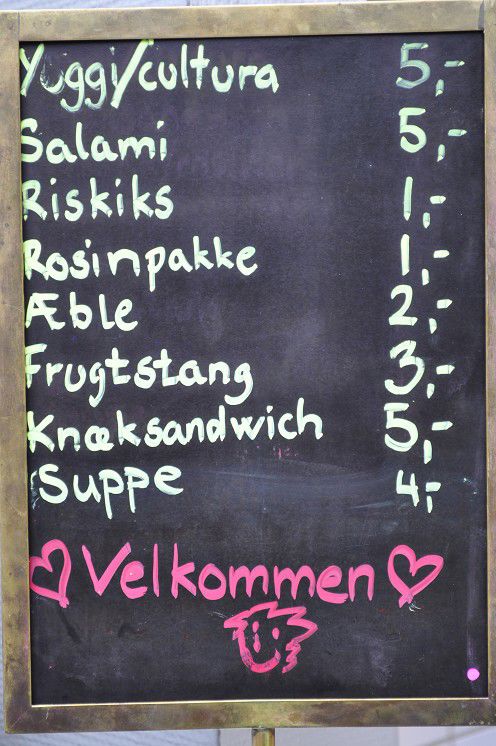 Yuggi/cultura 5,-
Salami 5,-
Riskiks 1,-
Rosinpakke 1,-
Æble 2,-
Frugtstang 3,-
Knæksandwich 5,-
Suppe 4,-
Velkommen